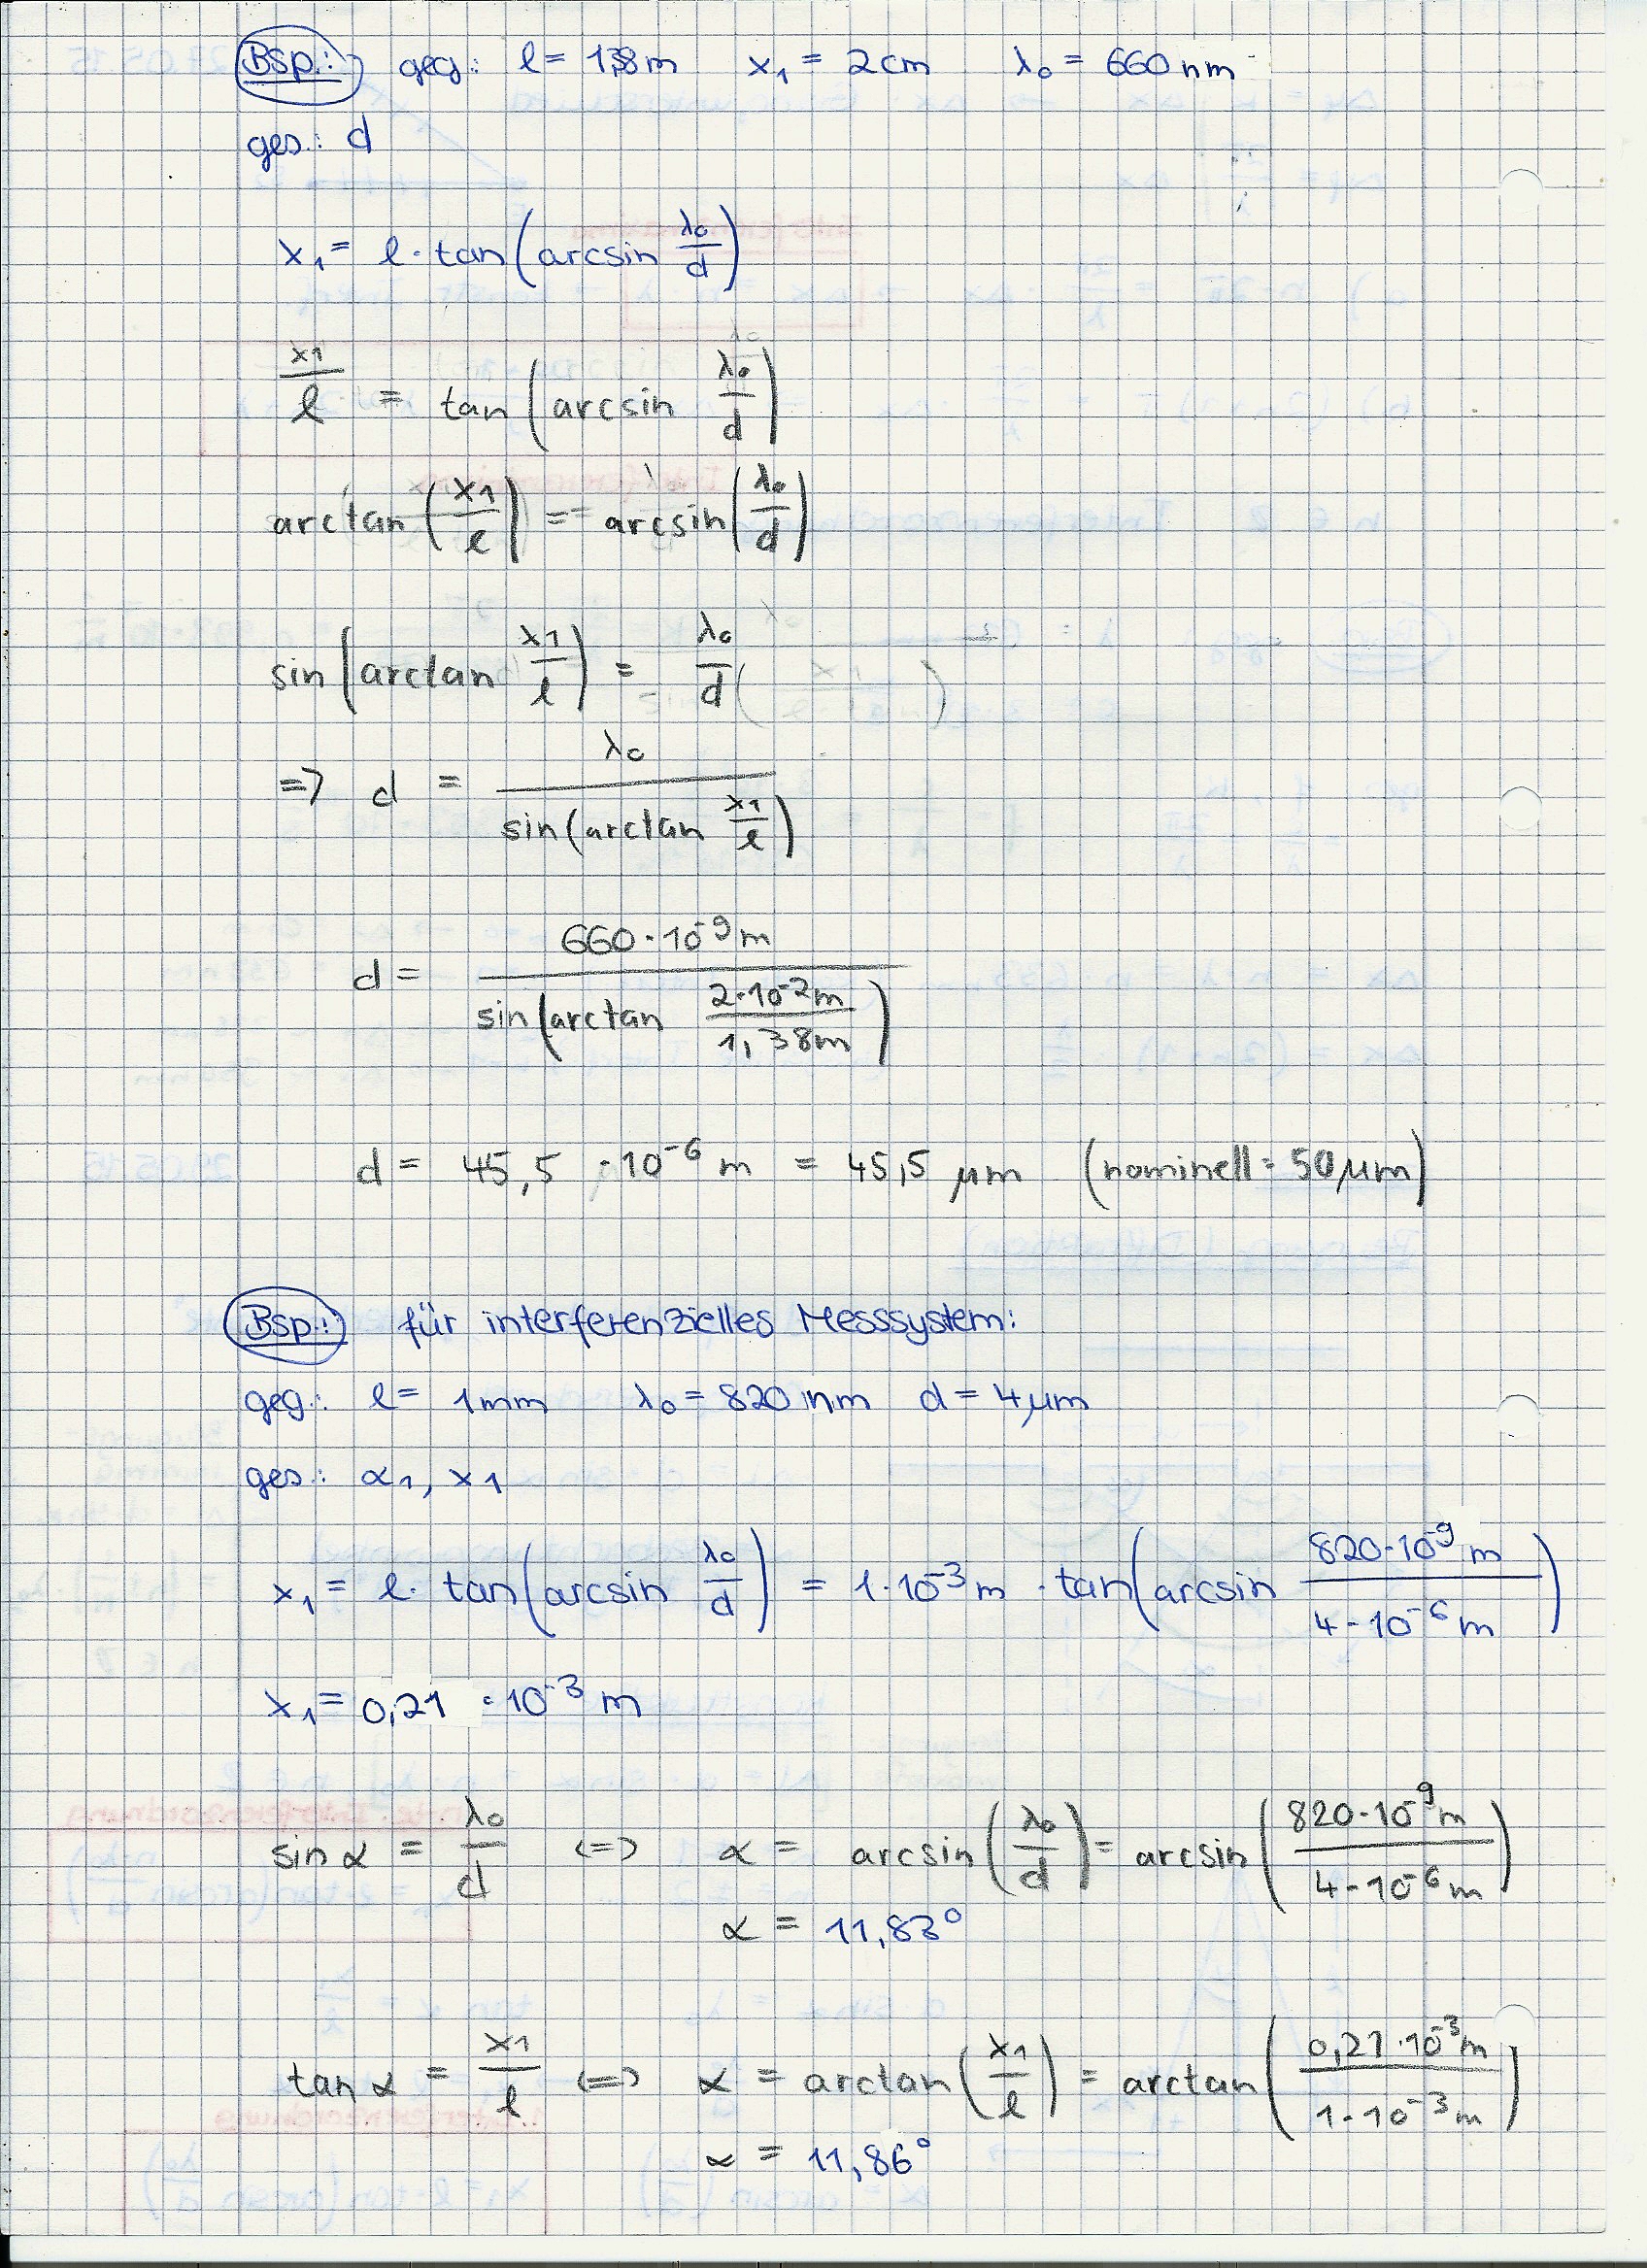 Bsp.: geg.: l = 1,38 m x₁ = 2 cm λ₀ = 660 nm
ges.: d
x₁ = l · tan(arcsin λ₀/d)
x1/l = tan(arcsin λ₀/d)
arctan(x1/l) = arcsin(λ₀/d)
sin(arctan x1/l) = λ₀/d
=> d = λ₀/sin(arctan x1/l)
d = 660·10⁻⁹ m/sin(arctan 2·10⁻² m/1,38 m)
d = 45,5 · 10⁻⁶ m = 45,5 µm (nominell: 50 µm)
Bsp.: für interferenzielles Messsystem:
geg.: l = 1 mm λ₀ = 820 nm d = 4 µm
ges.: α₁, x1
x₁ = l · tan(arcsin λ₀/d) = 1·10⁻³ m · tan(arcsin 820·10⁻⁹ m/4·10⁻⁶ m)
x₁ = 0,21 · 10⁻³ m
sin α = λ₀/d <=> α = arcsin(λ₀/d) = arcsin(820·10⁻⁹ m/4·10⁻⁶ m)
α = 11,83°
tan α = x1/l <=> α = arctan(x1/l) = arctan(0,21·10⁻³ m/1·10⁻³ m)
α = 11,86°